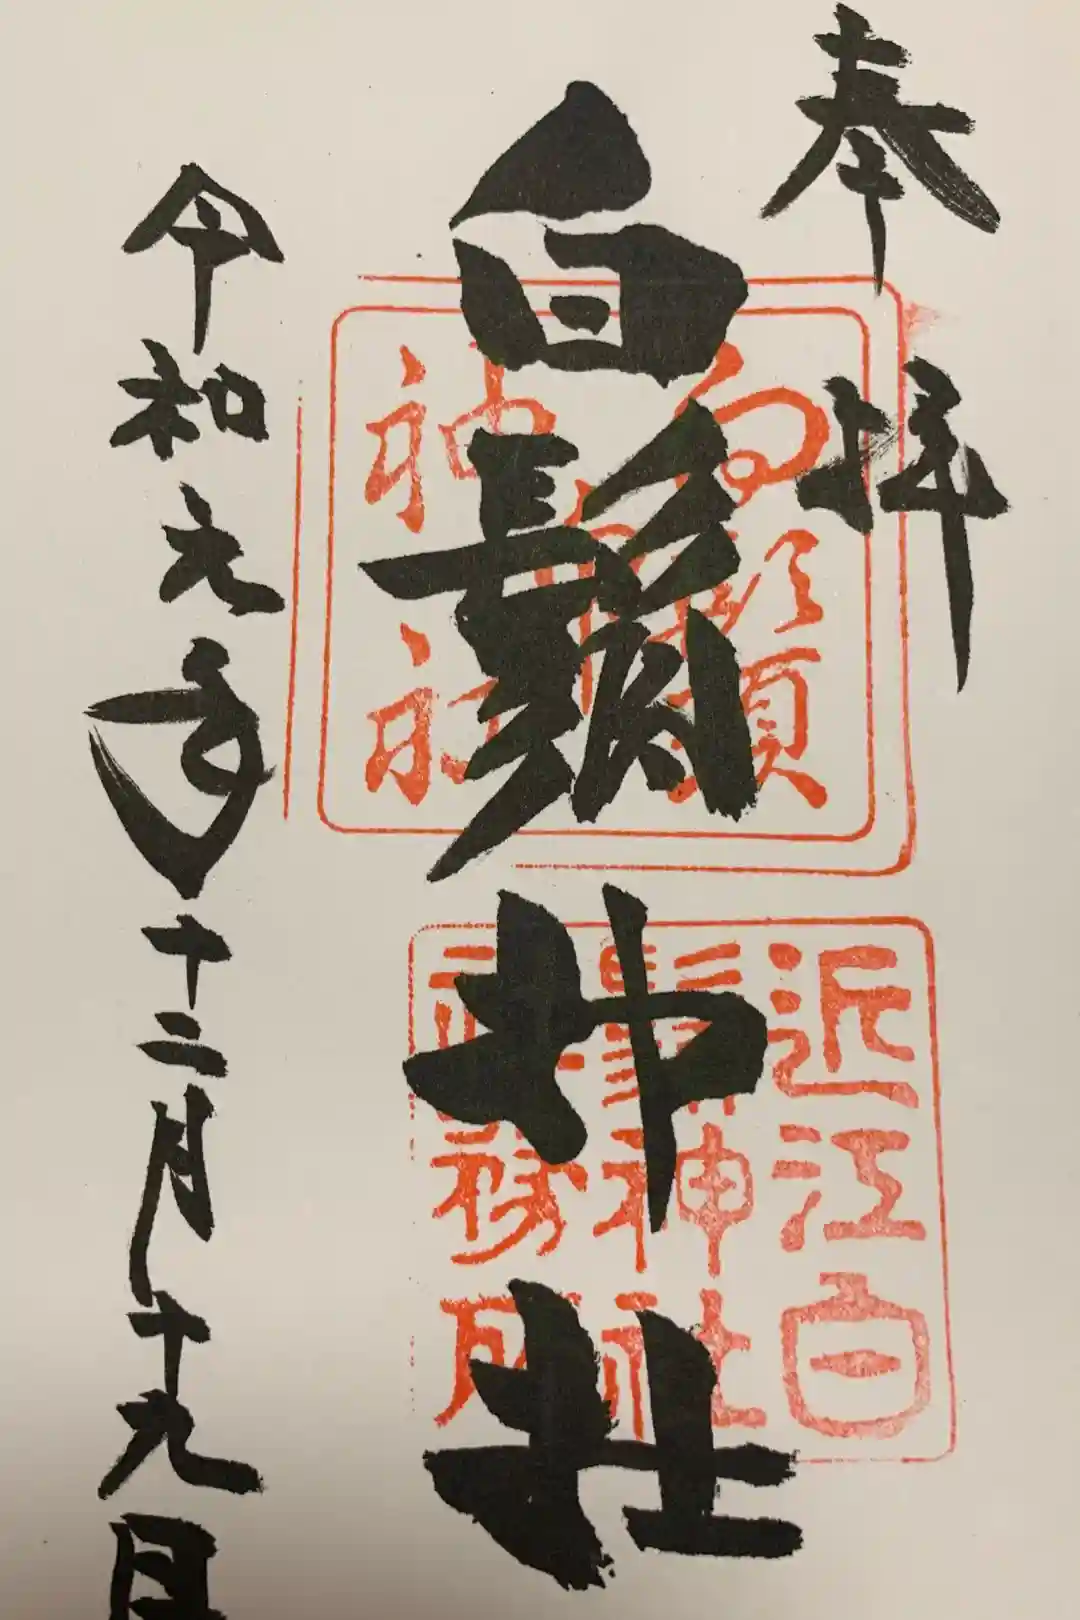 奉拝
白鬚神社
令和元年十二月十九日
白鬚
神社
近江白
鬚神社
社務所